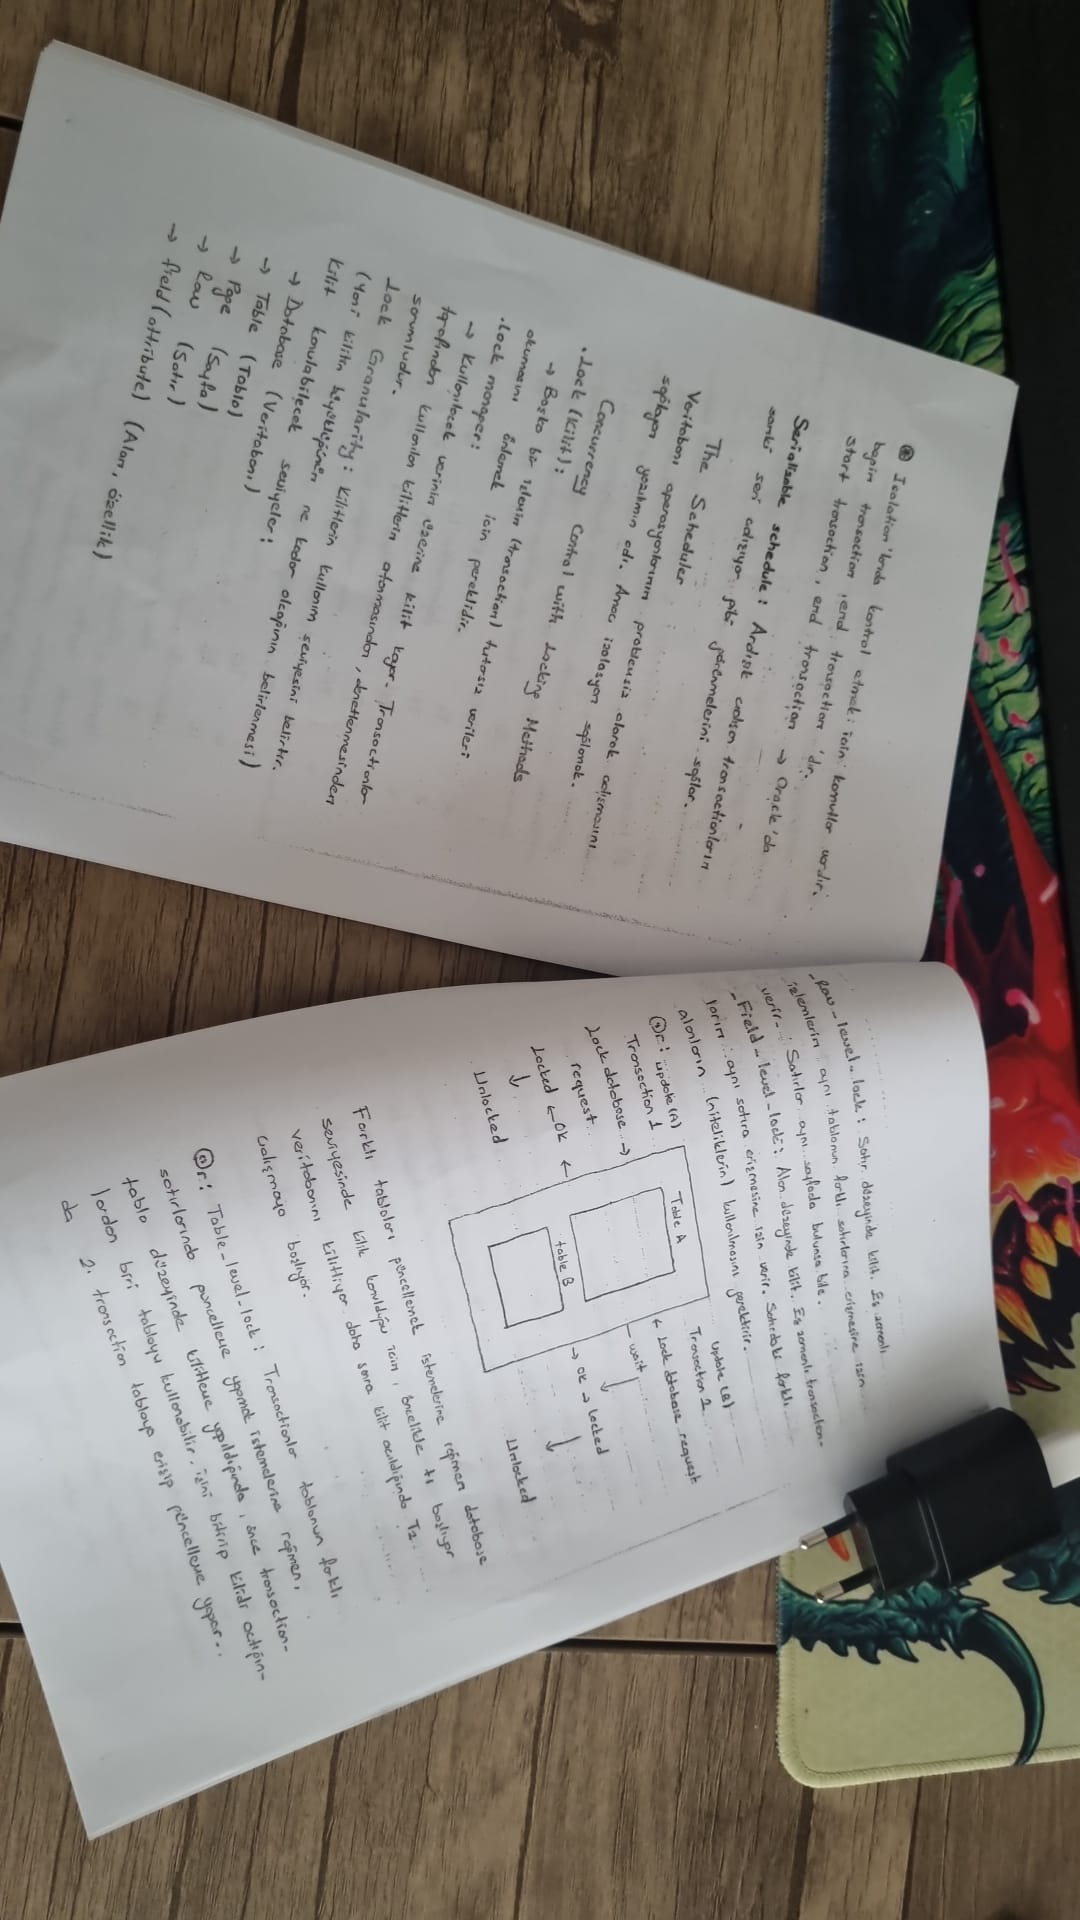 ⊛ Isolation'larda kontrol etmek için komutlar vardır.
begin transaction, end transaction 'dır.
start transaction, end transaction → Oracle'da
Serializable schedule: Ardışık çalışan transactionların
sanki seri çalışıyor gibi görünmelerini sağlar.
The Scheduler
Veritabanı operasyonlarının problemsiz olarak çalışmasını
sağlayan yazılımın adı. Amacı izolasyon sağlamak.
Concurrency Control with Locking Methods
• Lock (Kilit):
→ Başka bir işlemin (transaction) tutarsız verileri
okumasını önlemek için gereklidir.
• Lock manager:
→ Kullanılacak verinin üzerine kilit koyar. Transactionlar
tarafından kullanılan kilitlerin atanmasından, denetlenmesinden
sorumludur.
Lock Granularity: Kilitlerin kullanım seviyesini belirtir.
(Yani kilitin büyüklüğünün ne kadar olcağının belirlenmesi)
Kilit konulabilecek seviyeler:
→ Database (Veritabanı)
→ Table (Tablo)
→ Page (Sayfa)
→ Row (Satır)
→ Field (attribute) (Alan, özellik)
- Row-level-lock: Satır düzeyinde kilit. Eş zamanlı
işlemlerin aynı tablonun farklı satırlarına erişmesine izin
verir. Satırlar aynı sayfada bulunsa bile.
- Field-level-lock: Alan düzeyinde kilit. Eş zamanlı transaction-
ların aynı satıra erişmesine izin verir. Satırdaki farklı
alanların (niteliklerin) kullanılmasını gerektirir.
Ör: update (A)
update (B)
Transaction 1
Transaction 2
Table A
Lock database →
request
← Lock database request
wait
Locked ← OK ←
→ OK → Locked
↓
↓
Table B
Unlocked
Unlocked
Farklı tabloları güncellemek istemelerine rağmen database
seviyesinde kilit konulduğu için, öncelikle t1 başlıyor
veritabanını kilitliyor daha sonra kilit açıldığında T2
çalışmaya başlıyor.
Ör: Table-level-lock: Transactionlar tablonun farklı
satırlarında güncelleme yapmak istemelerine rağmen,
tablo düzeyinde kilitleme yapıldığında, önce transaction-
lardan biri tabloyu kullanabilir. işini bitirip kilidi açtığın-
da 2. transaction tabloya erişip güncelleme yapar..